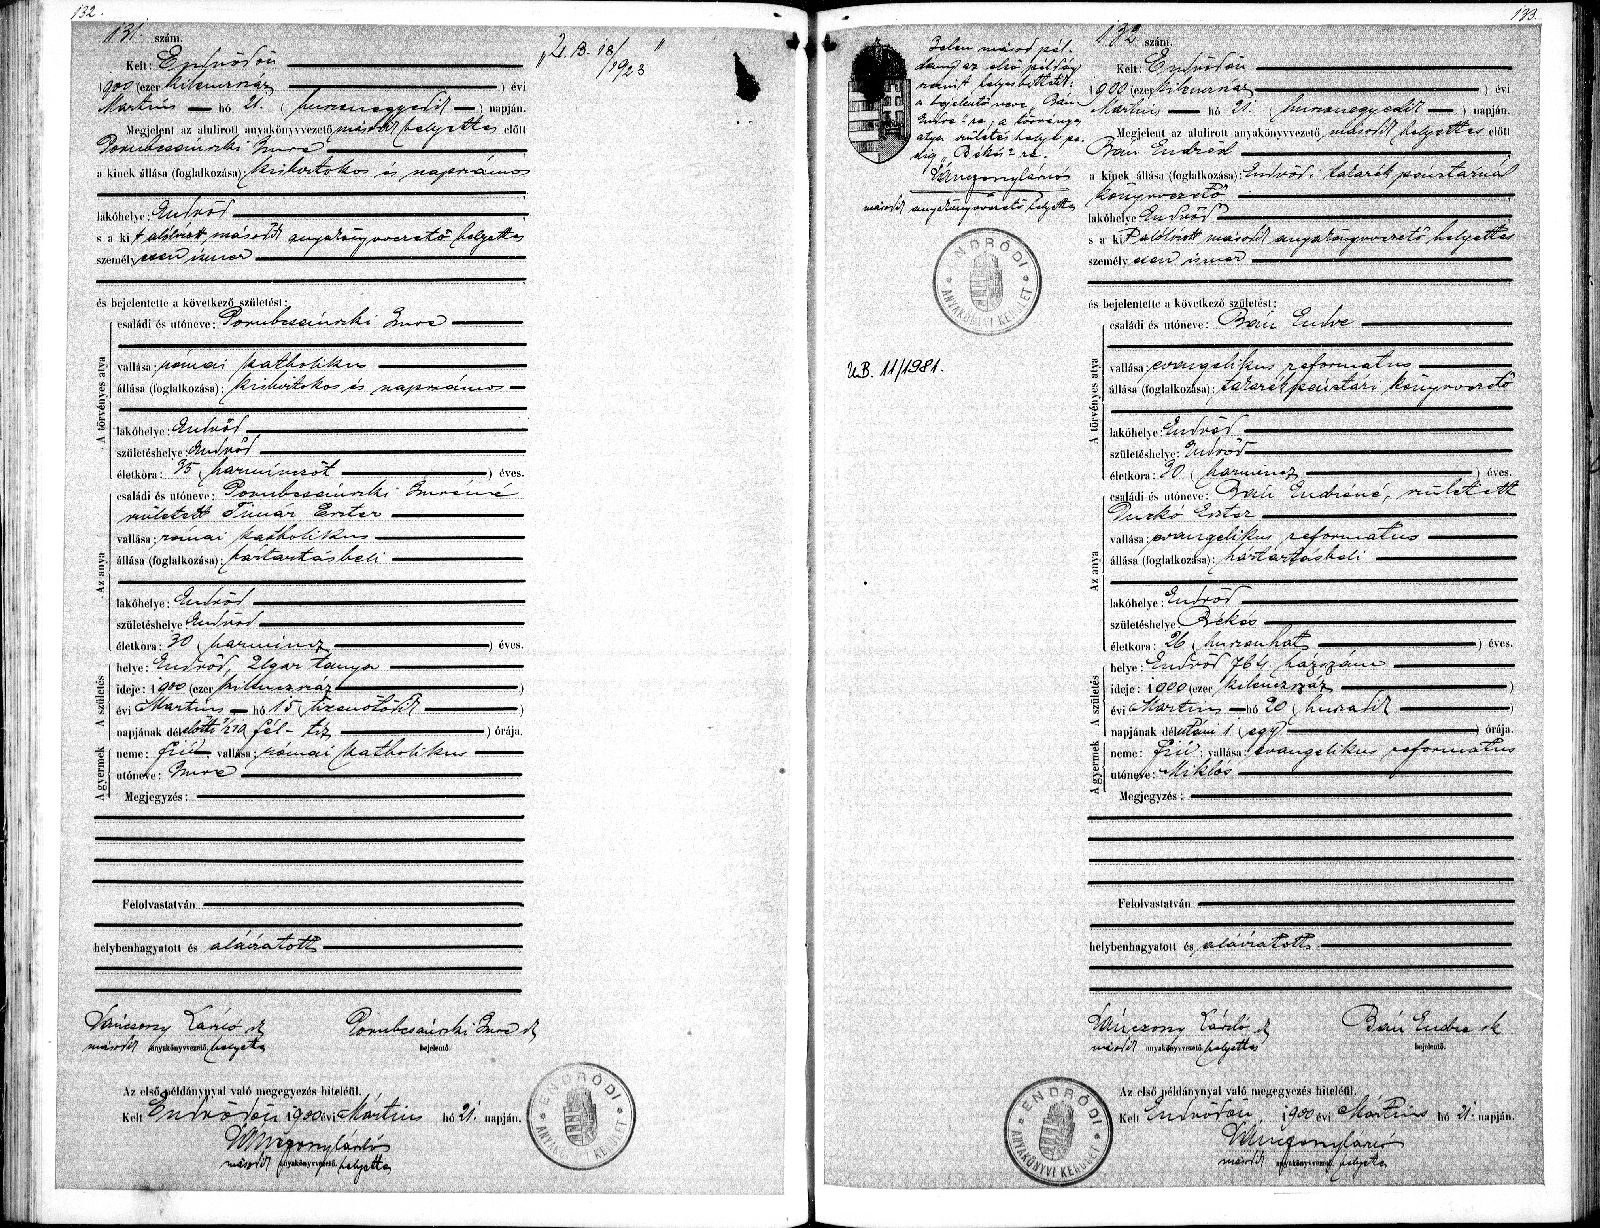 132.
131. szám.
Kelt: Endrődön
1900 (ezer kilenczszáz) évi
Martius hó 21. (huszonegyedik) napján.
Megjelent az alulirott anyakönyvvezető második helyettes előtt
Porubcsánszki Imre
a kinek állása (foglalkozása): kisbirtokos és napszámos
lakóhelye: Endrőd
s a kit alólirott második anyakönyvvezető helyettes
személyesen ismer
és bejelentette a következő születést:
A törvényes atya
családi és utóneve: Porubcsánszki Imre
vallása: római katholikus
állása (foglalkozása): kisbirtokos és napszámos
lakóhelye: Endrőd
születéshelye: Endrőd
életkora: 35 (harminczöt) éves.
Az anya
családi és utóneve: Porubcsánszki Imréné
született Timár Eszter
vallása: római katholikus
állása (foglalkozása): háztartásbeli
lakóhelye: Endrőd
születéshelye: Endrőd
életkora: 30 (harmincz) éves.
A születés
helye: Endrőd, Ugar tanya
ideje: 1900 (ezer kilenczszáz)
évi Martius hó 15 (tizenötödik)
napjának délelőtti ½10 (fél-tiz) órája.
A gyermek
neme: fiú; vallása: római katholikus
utóneve: Imre
Megjegyzés:
Felolvastatván
helybenhagyatott és aláiratott
Vánczony László sk Porubcsánszki Imre sk
második anyakönyvvezető helyettes bejelentő.
Az első példánynyal való megegyezés hiteléül.
Kelt Endrődön 1900 évi Mártius hó 21. napján.
Vánczony László
második anyakönyvvezető helyettes
ENDRŐDI
ANYAKÖNYVI KERÜLET
U. B. 18/1923
133.
Jelen másod pél-
dány az első példány
szerint helyesbittetik:
a bejelentő neve „Bán
Endre"-re; a törvényes
atya születés helye pe-
dig „Békés"-re.
Vánczony László
második anyakönyvvezető helyettes
ENDRŐDI
ANYAKÖNYVI KERÜLET
U.B. 11/1981.
132 szám.
Kelt: Endrődön
1900 (ezer kilenczszáz) évi
Martius hó 21. (huszonegyedik) napján.
Megjelent az alulirott anyakönyvvezető, második helyettes előtt
Bán Endréd
a kinek állása (foglalkozása): Endrőd. takarék pénztárnál
könyvvezető
lakóhelye: Endrőd
s a kit alólirott második anyakönyvvezető helyettes
személyesen ismer
és bejelentette a következő születést:
A törvényes atya
családi és utóneve: Bán Endre
vallása: evangelikus reformatus
állása (foglalkozása): takarékpénztári könyvvezető
lakóhelye: Endrőd
születéshelye: Endrőd
életkora: 30 (harmincz) éves.
Az anya
családi és utóneve: Bán Endréné, született
Durkó Eszter
vallása: evangelikus reformatus
állása (foglalkozása): háztartásbeli
lakóhelye: Endrőd
születéshelye: Békés
életkora: 26 (huszonhat) éves.
A születés
helye: Endrőd 764 házszám
ideje: 1900 (ezer kilenczszáz)
évi Martius hó 20 (huszadik)
napjának délutáni 1 (egy) órája.
A gyermek
neme: fiú; vallása: evangelikus reformatus
utóneve: Miklós
Megjegyzés:
Felolvastatván
helybenhagyatott és aláiratott
Vánczony László sk Bán Endre sk
második anyakönyvvezető helyettes bejelentő.
Az első példánynyal való megegyezés hiteléül.
Kelt Endrődön, 1900 évi Mártius hó 21. napján.
Vánczony László
második anyakönyvvezető helyettes
ENDRŐDI
ANYAKÖNYVI KERÜLET